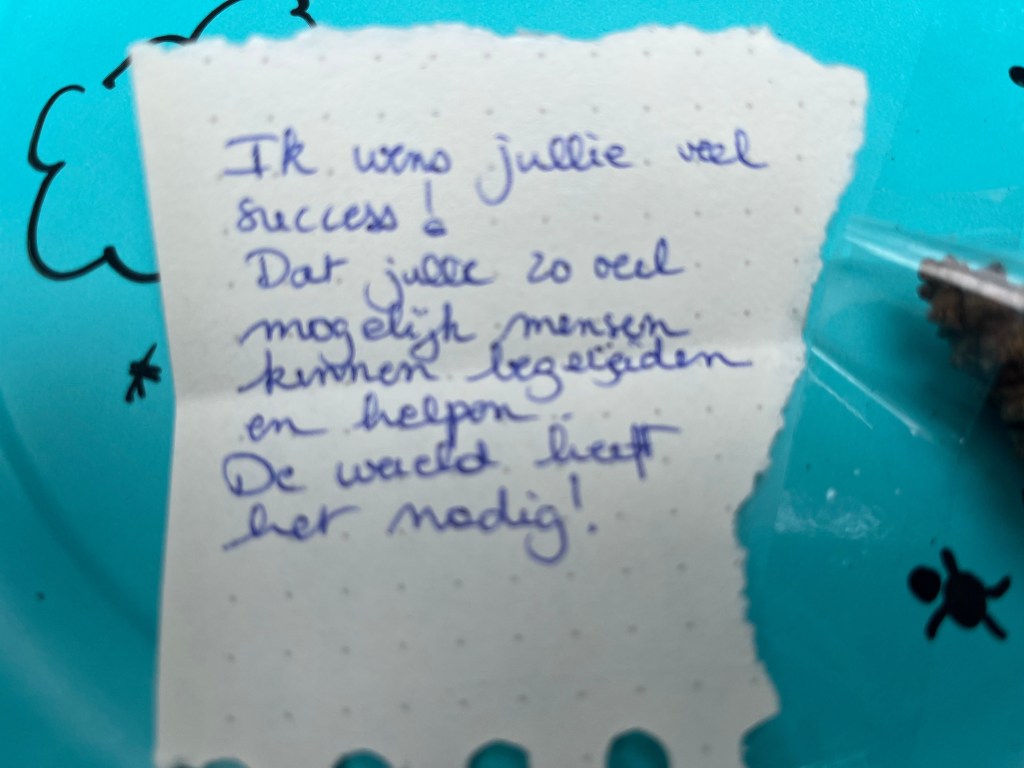 Ik wens jullie veel
success!
Dat jullie zo veel
mogelijk mensen
kunnen begeleiden
en helpen.
De wereld heeft
het nodig!